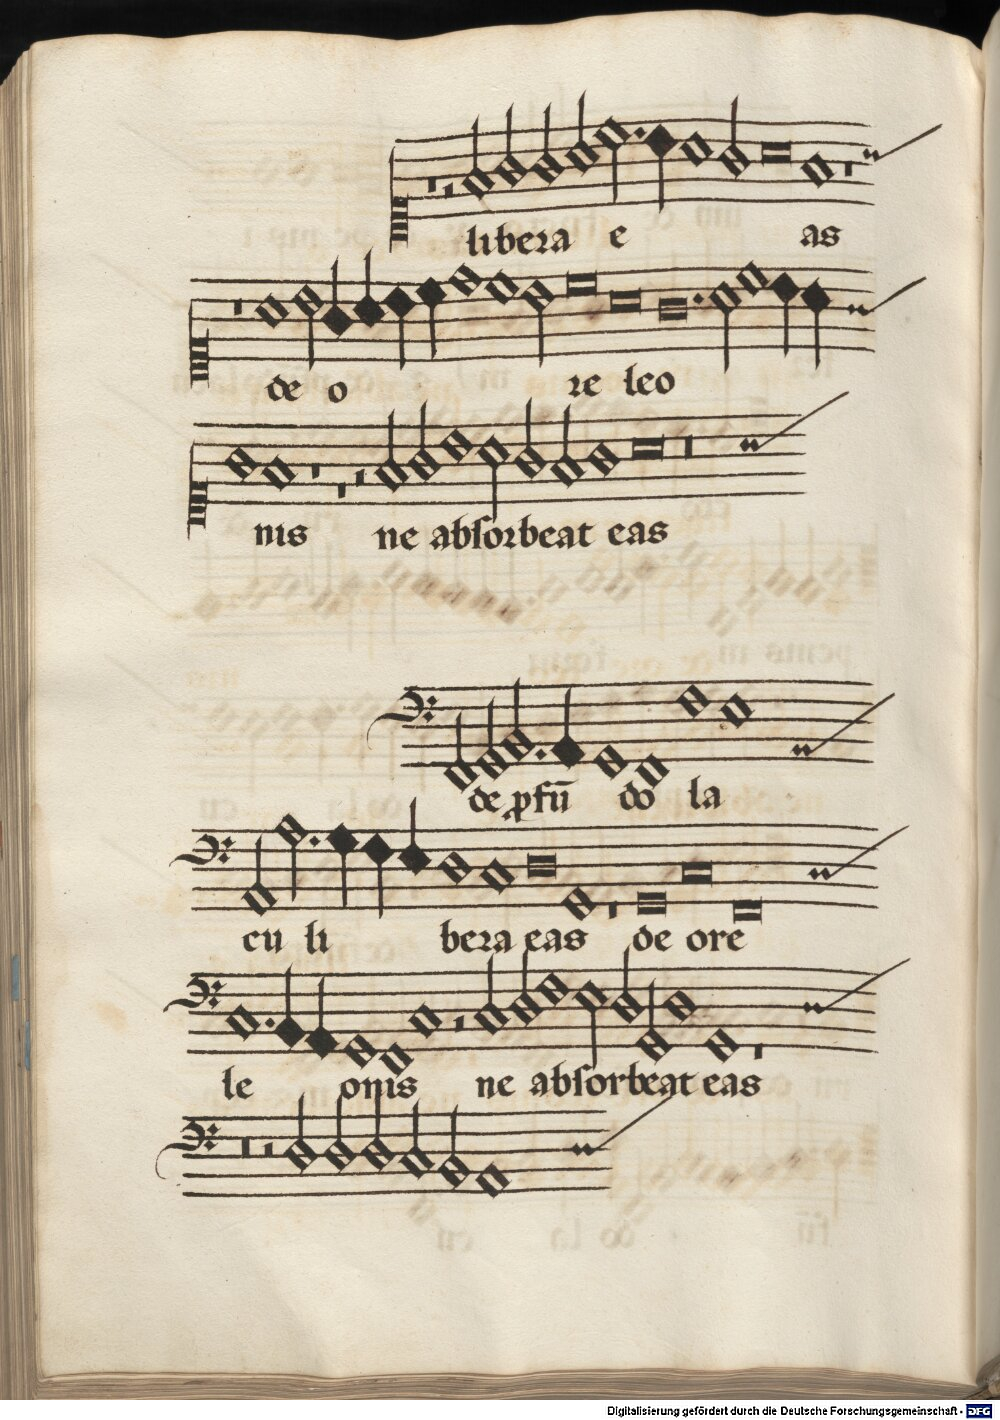 libera e as
de o re leo
nis ne abſorbeat eas
de ꝓfū do la
cu li bera eas de ore
le onis ne abſorbeat eas
Digitalisierung gefördert durch die Deutsche Forschungsgemeinschaft - DFG